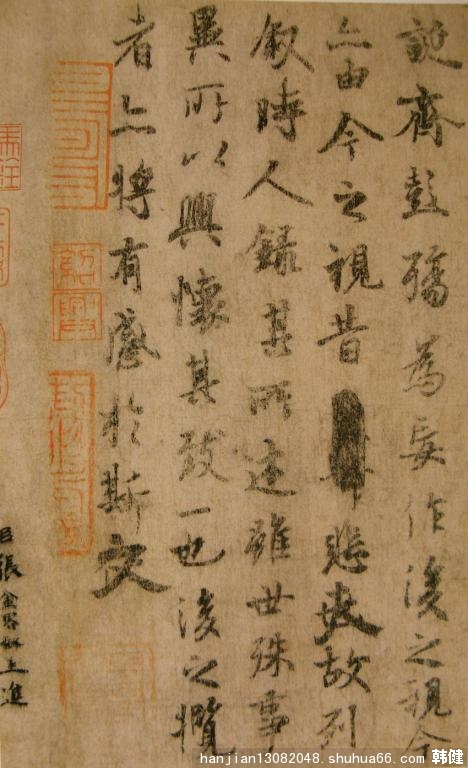 誕齊彭殤為妄作後之視今
亦由今之視昔悲夫故列
叙時人錄其所述雖世殊事
異所以興懷其致一也後之攬
者亦将有感於斯文
紹興
臣張金界奴上進
hanjian13082048.shuhua66.com 韩健